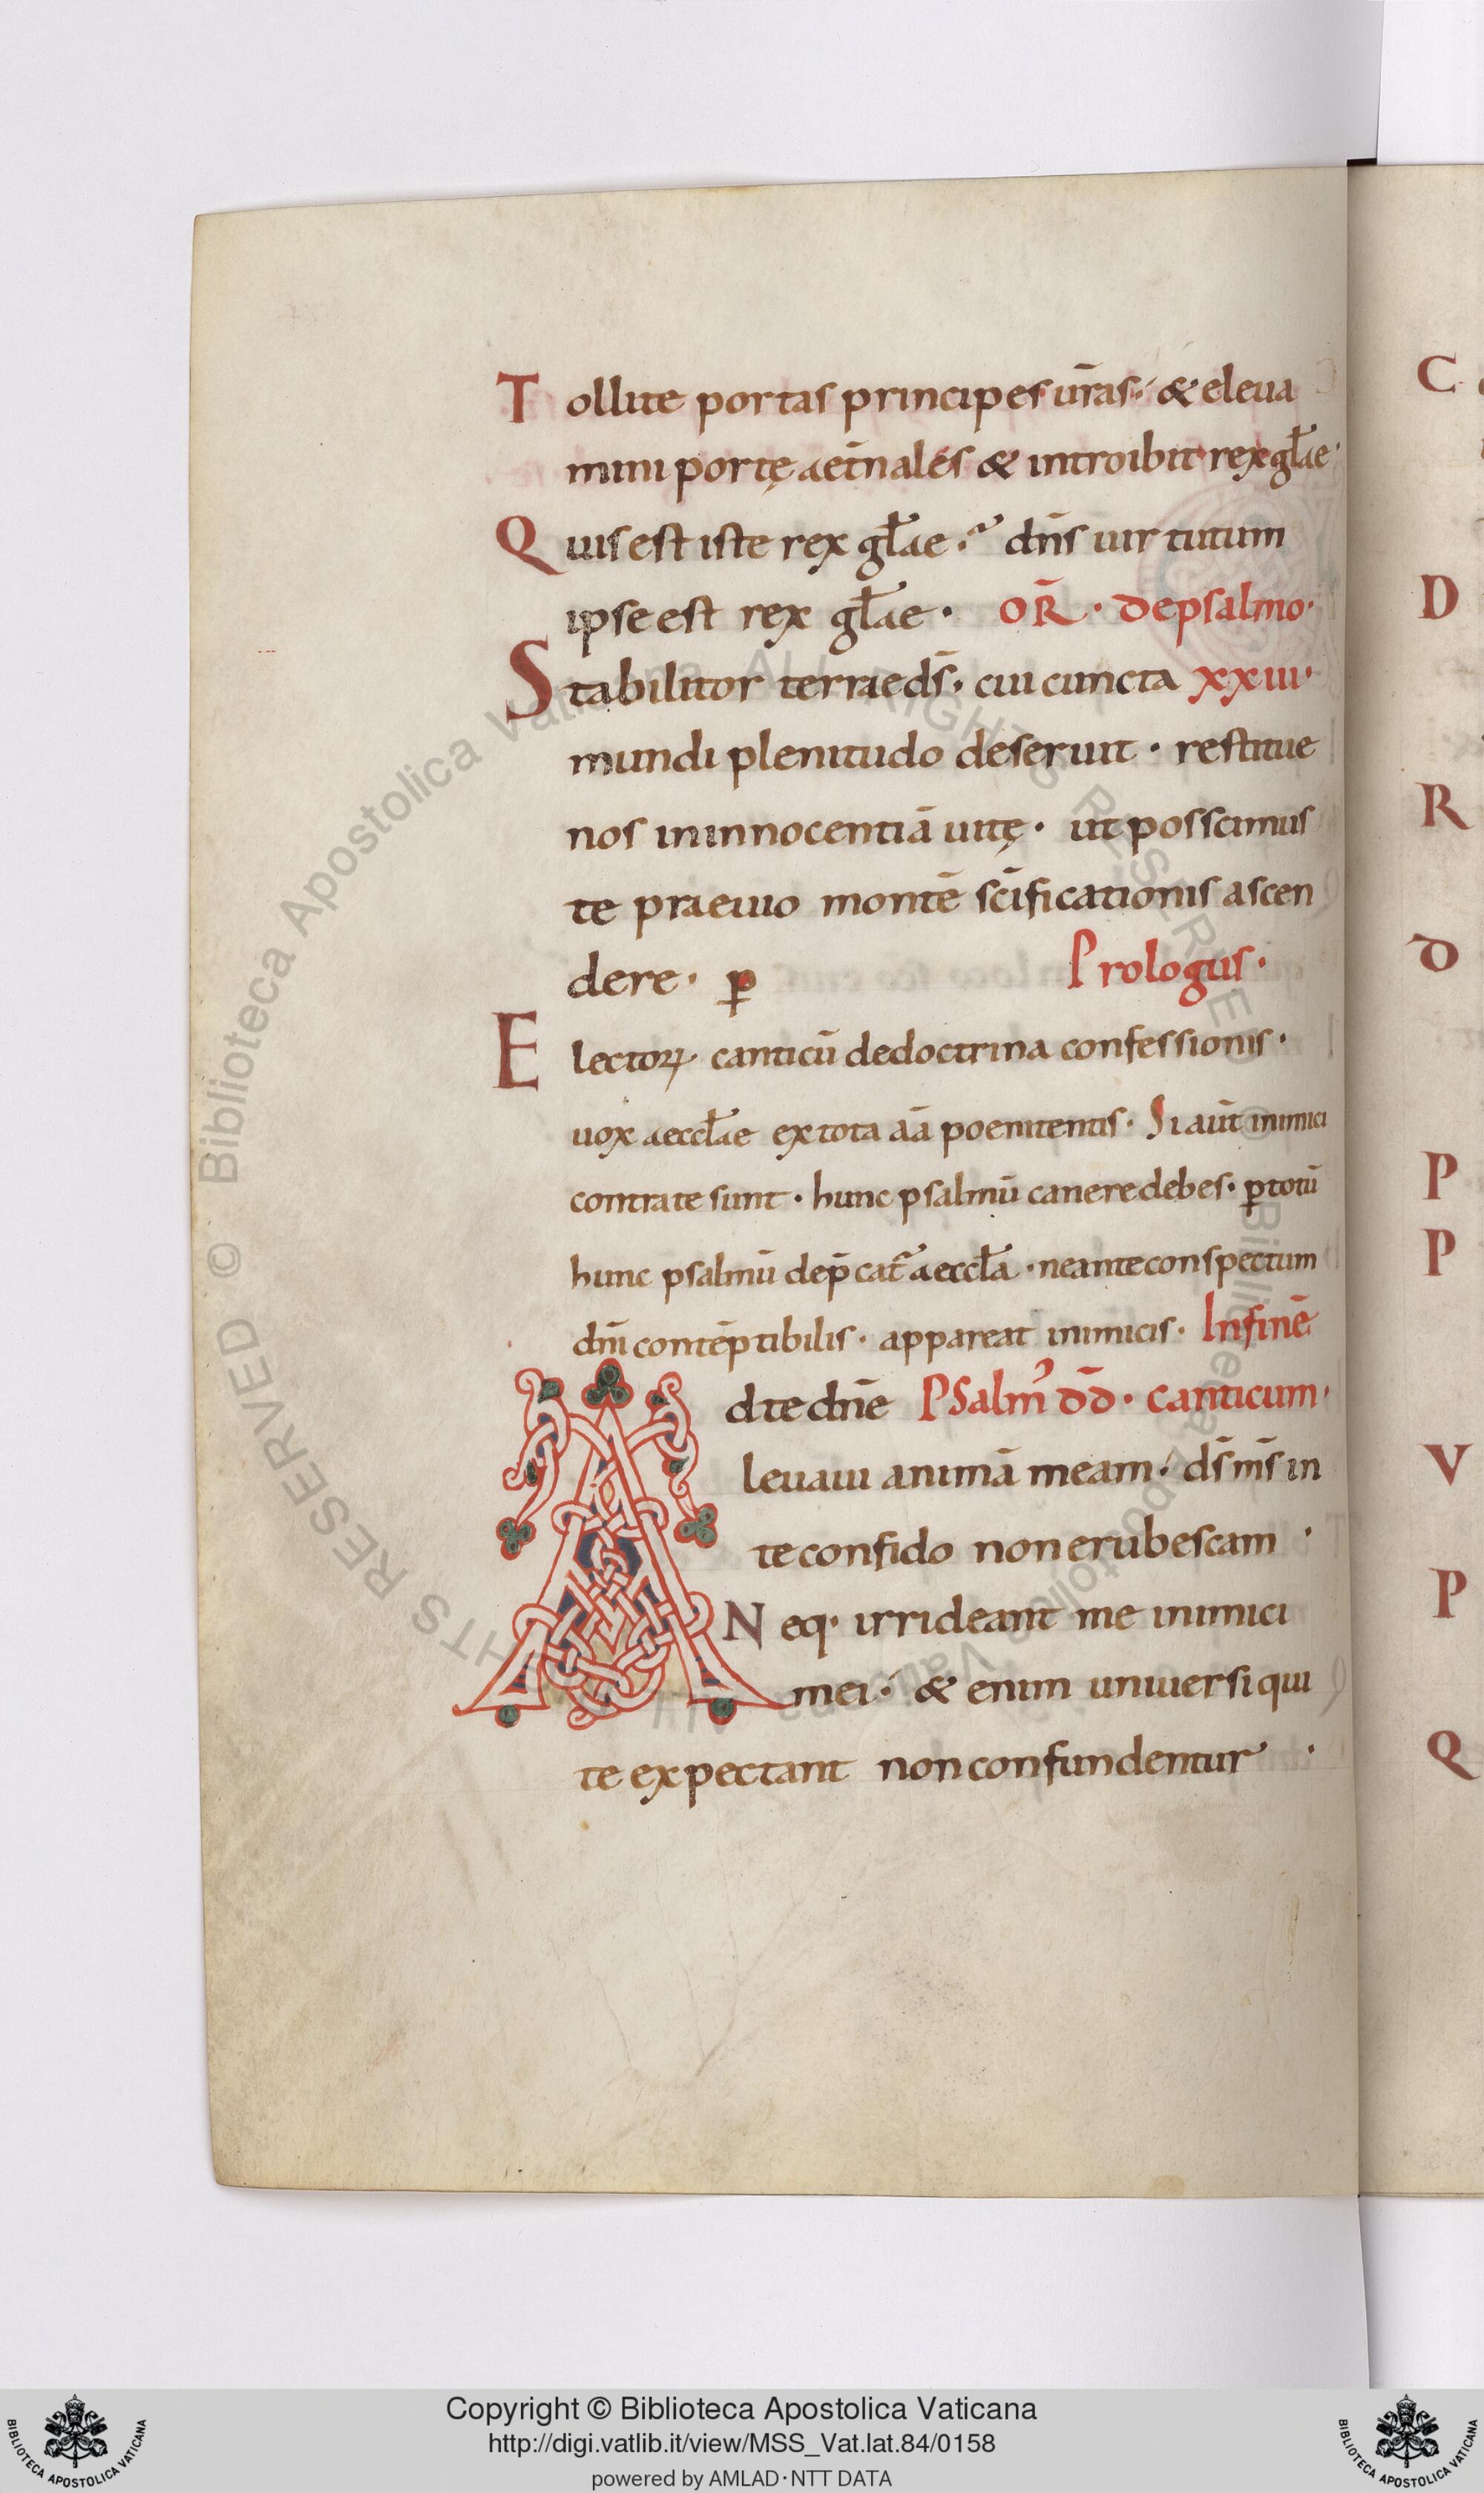 Tollite portas principes ur̄as· & eleua
mini portę aet̄nales & introibit rex gl̄ae·
Quis est iste rex gl̄ae· dn̄s uirtutum
ipse est rex gl̄ae· OR̄· de psalmo·
Stabilitor terrae ds̄· cui cuncta xxiii·
mundi plenitudo deseruit· restitue
nos in innocentiā uitę· ut possimus
te praeuio montē sc̄ificationis ascen
dere· ꝑ Prologus·
Electoꝝ canticū de doctrina confessionis·
uox aeccl̄ae ex tota āā poenitentis· Si aūt inimici
contra te sunt· hunc psalmū canere debes· ꝑ totū
hunc psalmū dep̄cat̄ aeccl̄a· ne ante conspectum
dn̄i contēptibilis· appareat inimicis· In finē
Ad te dn̄e Psalm᾿ dd̄· canticum·
leuaui animā meam· ds̄ ms̄ in
te confido non erubescam·
Neq· irrideant me inimici
mei· & enim uniuersi qui
te expectant non confundentur·
C
D
R
D
P
P
V
P
Q
© Biblioteca Apostolica Vaticana ALL RIGHTS RESERVED
Copyright © Biblioteca Apostolica Vaticana
http://digi.vatlib.it/view/MSS_Vat.lat.84/0158
powered by AMLAD·NTT DATA
BIBLIOTECA APOSTOLICA VATICANA
BIBLIOTECA APOSTOLICA VATICANA